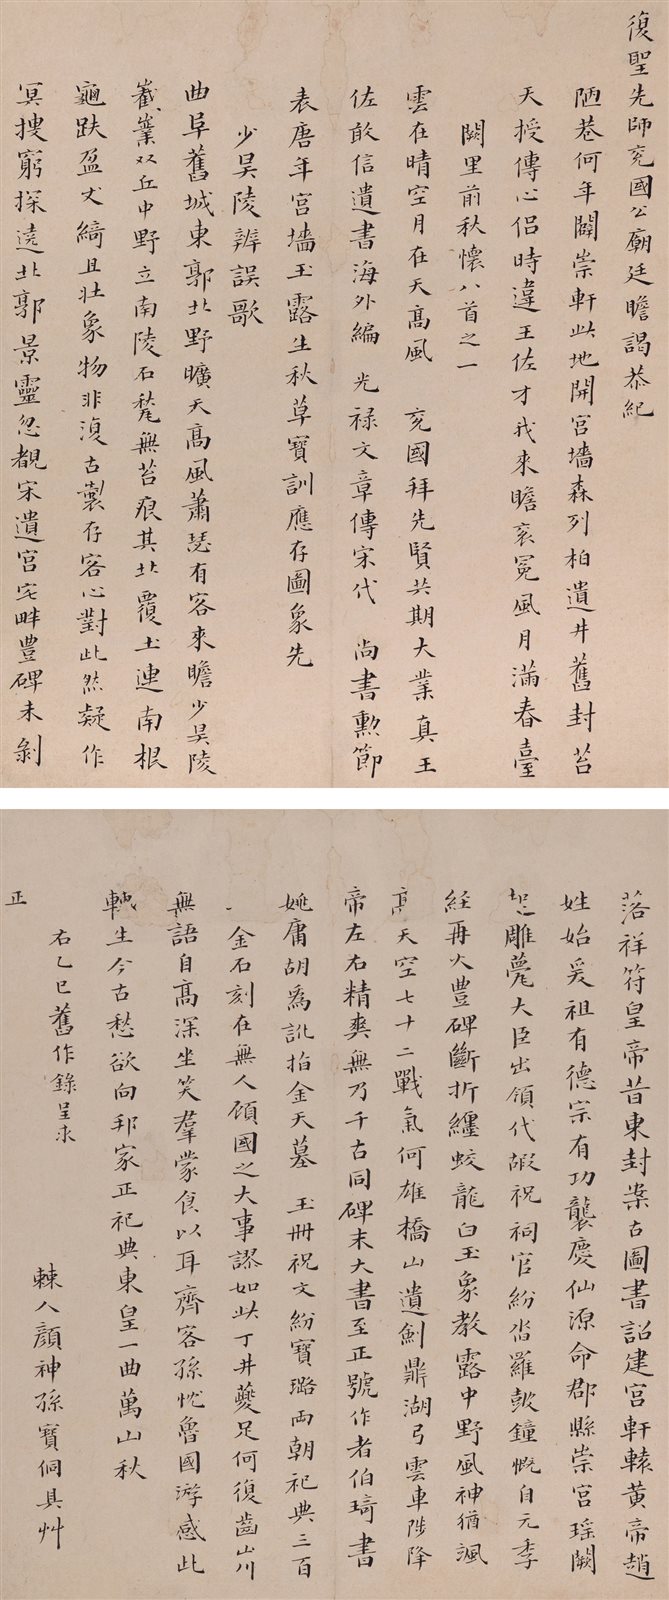 復聖先師兗國公廟廷瞻謁恭紀
陋巷何年闢崇軒此地開宮墻森列柏遺井舊封苔
天授傳心侶時違王佐才我來瞻袞冕風月滿春臺
闕里前秋懷八首之一
雲在晴空月在天高風兗國拜先賢共期大業真王
佐敢信遺書海外編光祿文章傳宋代尚書勲節
表唐年宮墻玉露生秋草寶訓應存圖象先
少昊陵辨誤歌
曲阜舊城東郭北野曠天高風蕭瑟有客來瞻少昊陵
嶻嶪双丘中野立南陵石甃無苔痕其北覆土連南根
龜趺盈丈綺且壯象物非復古製存客心對此然疑作
冥搜窮探遶北郭景靈忽覩宋遺宮宅畔豊碑未剝
落祥符皇帝昔東封案古圖書詔建宮軒轅黃帝趙
姓始爰祖有德宗有功襲慶仙源命郡縣崇宮瑤闕
雕薨大臣出領代嘏祝祠官紛沓羅鼓鐘慨自元季
經再火豊碑斷折纏蛟龍白玉象教露中野風神猶颯
天空七十二戰氣何雄橋山遺劍鼎湖弓雲車陟降
帝左右精爽無乃千古同碑末大書至正號作者伯琦書
姚庸胡為訛指金天墓玉冊祝文紛寶璐兩朝祀典三百
金石刻在無人顧國之大事謬如此丁井夔足何復齒山川
無語自高深坐笑羣蒙食以耳齊客孫忱魯國游感此
輒生今古愁欲向邦家正祀典東皇一曲萬山秋
右乙巳舊作錄呈求
正
棘人顏神孫寶侗具艸